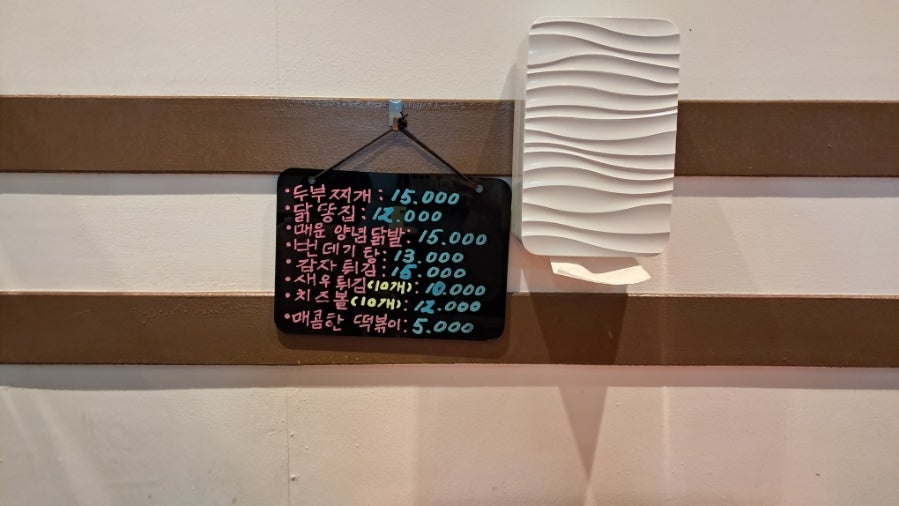 •두부찌개: 15.000
•닭똥집: 12.000
•매운 양념닭발: 15.000
•번데기탕: 13.000
•감자튀김: 15.000
•새우튀김(10개): 10.000
•치즈볼(10개): 12.000
•매콤한 떡볶이: 5.000